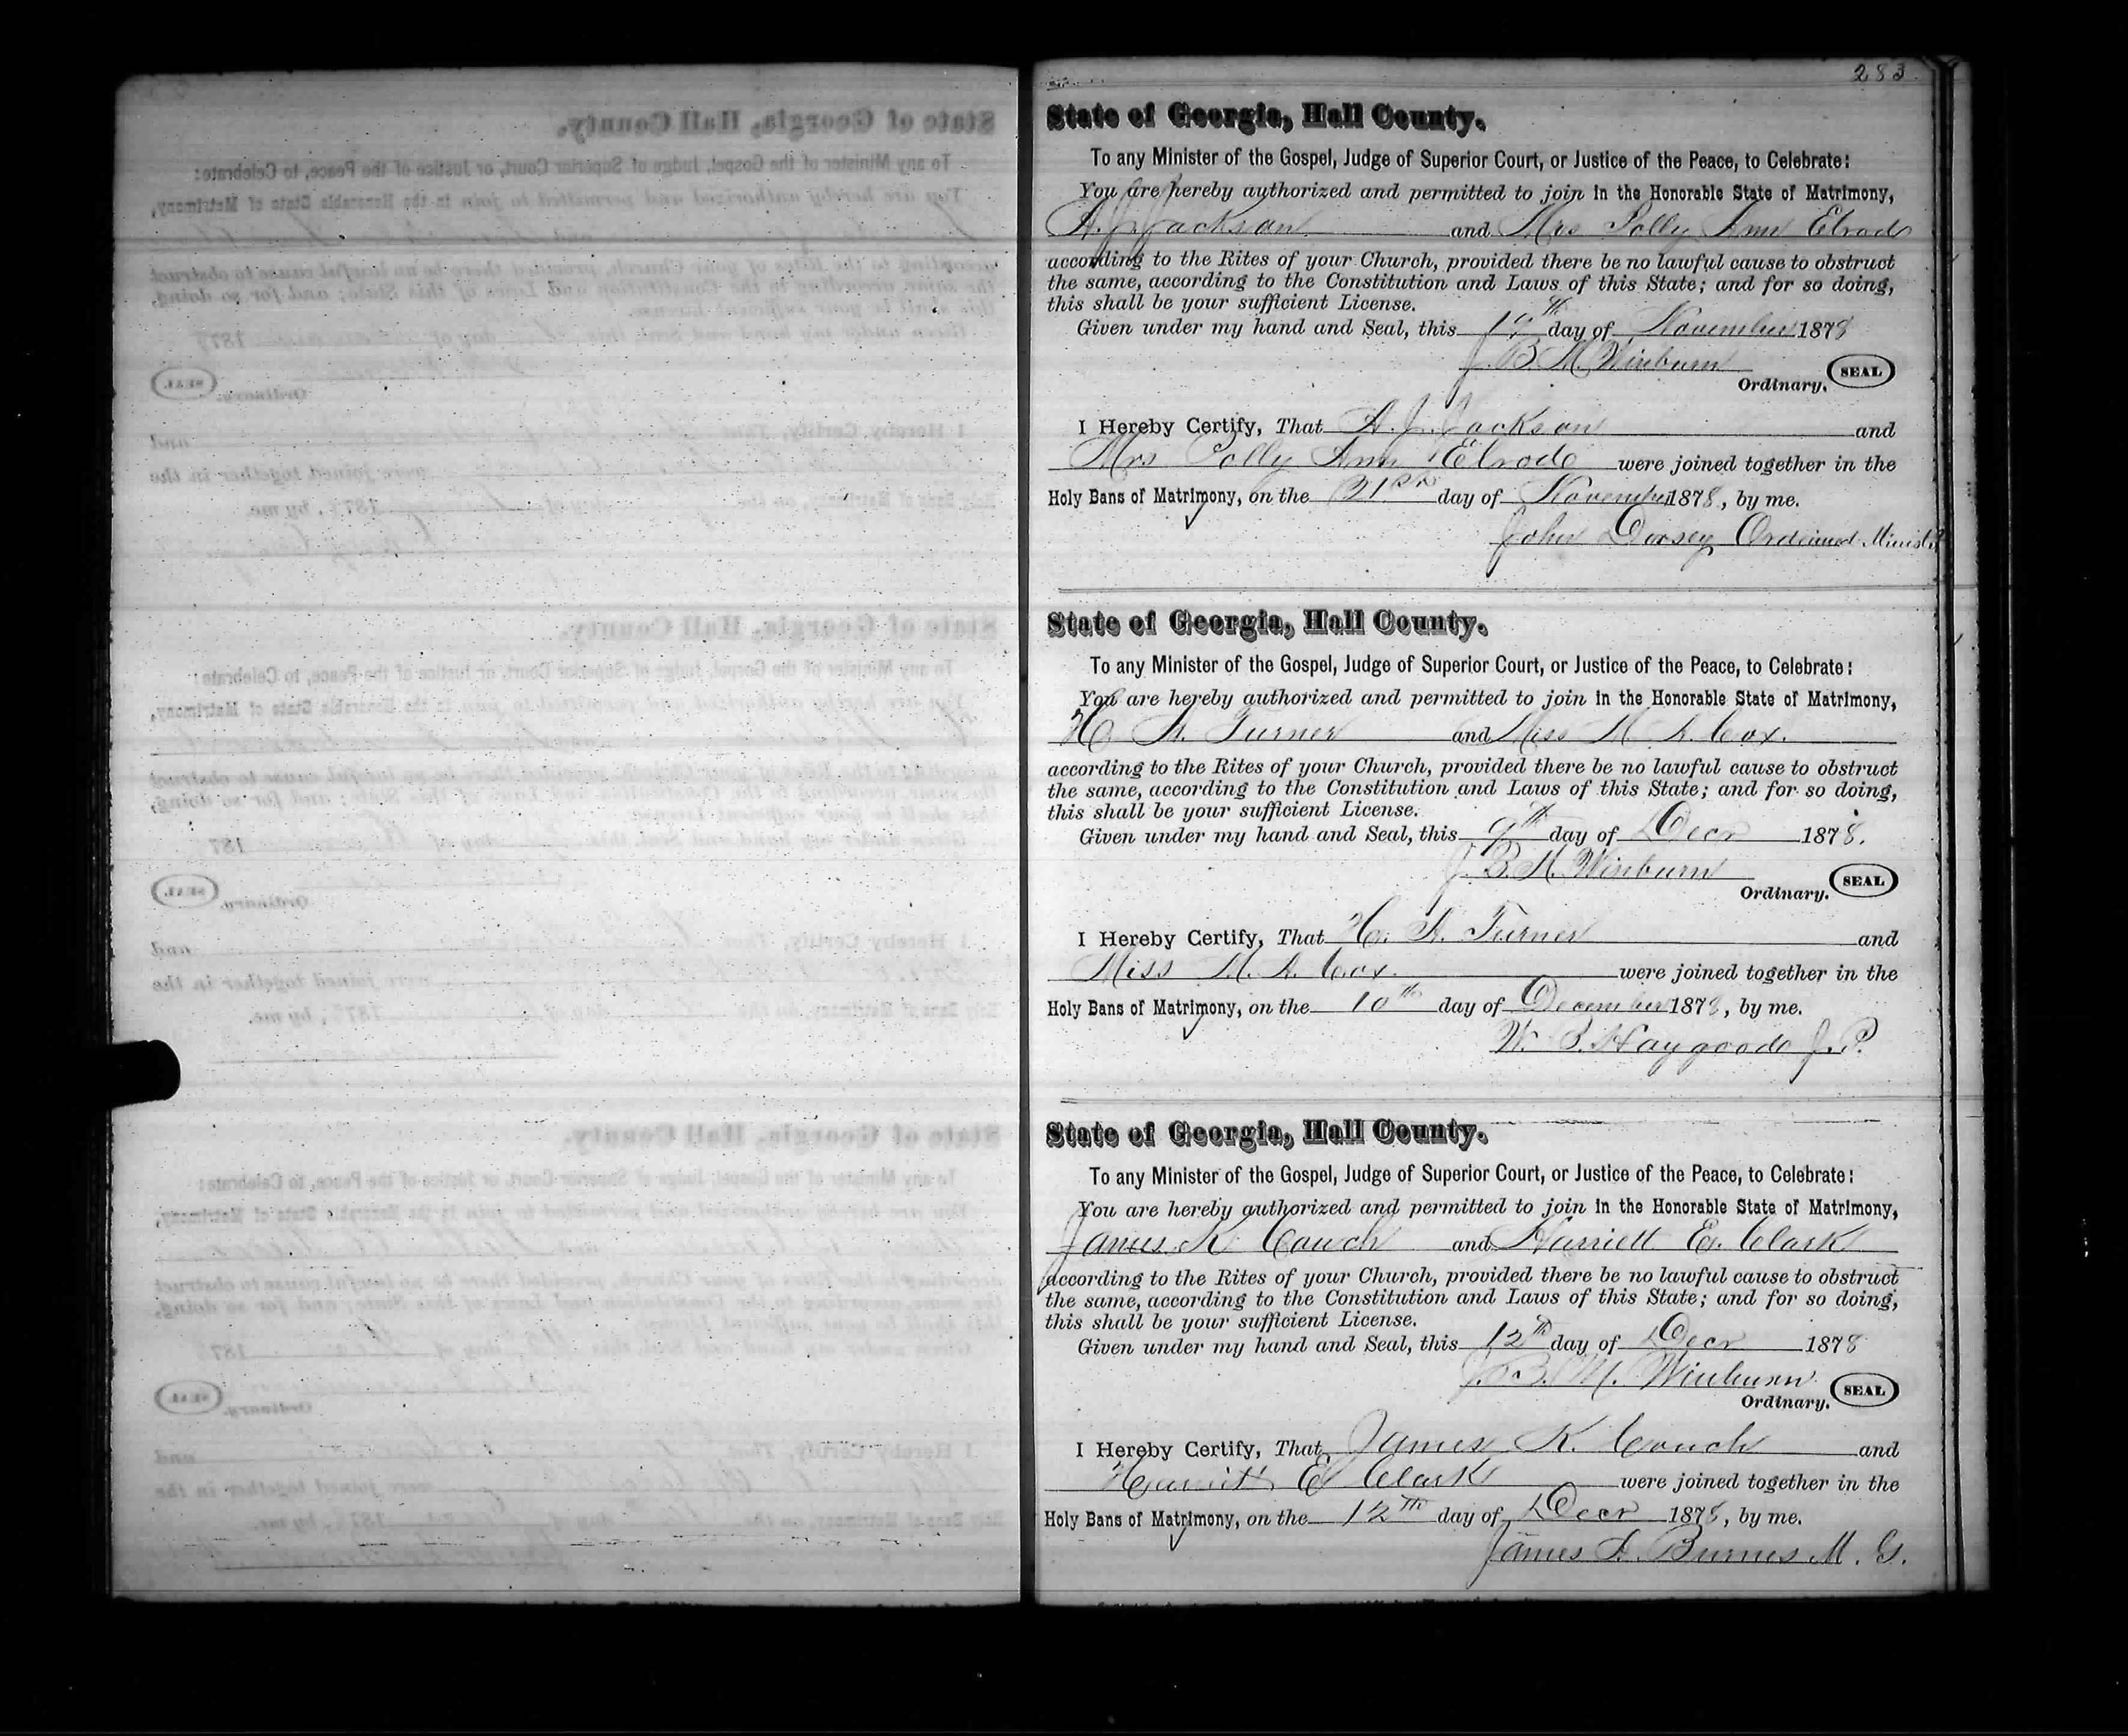 283
State of Georgia, Hall County.
To any Minister of the Gospel, Judge of Superior Court, or Justice of the Peace, to Celebrate:
You are hereby authorized and permitted to join in the Honorable State of Matrimony,
A. J. Jackson and Mrs Polly Ann Elrod
according to the Rites of your Church, provided there be no lawful cause to obstruct
the same, according to the Constitution and Laws of this State; and for so doing,
this shall be your sufficient License.
Given under my hand and Seal, this 19th day of November 1878
J. B. M. Winburn
Ordinary. SEAL
I Hereby Certify, That A. J. Jackson and
Mrs Polly Ann Elrod were joined together in the
Holy Bans of Matrimony, on the 21st day of November 1878, by me.
John Dorsey Ordained Minister
State of Georgia, Hall County.
To any Minister of the Gospel, Judge of Superior Court, or Justice of the Peace, to Celebrate:
You are hereby authorized and permitted to join in the Honorable State of Matrimony,
H. A. Turner and Miss M A. Cox.
according to the Rites of your Church, provided there be no lawful cause to obstruct
the same, according to the Constitution and Laws of this State; and for so doing,
this shall be your sufficient License.
Given under my hand and Seal, this 9th day of Decr 1878.
J. B. M. Winburn
Ordinary. SEAL
I Hereby Certify, That H. A. Turner and
Miss M. A. Cox. were joined together in the
Holy Bans of Matrimony, on the 10th day of December 1878, by me.
W. B. Haygood J. P.
State of Georgia, Hall County.
To any Minister of the Gospel, Judge of Superior Court, or Justice of the Peace, to Celebrate:
You are hereby authorized and permitted to join in the Honorable State of Matrimony,
James K Couch and Harriett E. Clark
according to the Rites of your Church, provided there be no lawful cause to obstruct
the same, according to the Constitution and Laws of this State; and for so doing,
this shall be your sufficient License.
Given under my hand and Seal, this 12th day of Decr 1878
J. B. M. Winburn
Ordinary. SEAL
I Hereby Certify, That James K. Couch and
Harriett E Clark were joined together in the
Holy Bans of Matrimony, on the 12th day of Decr 1878, by me.
James A. Burnes M. G.